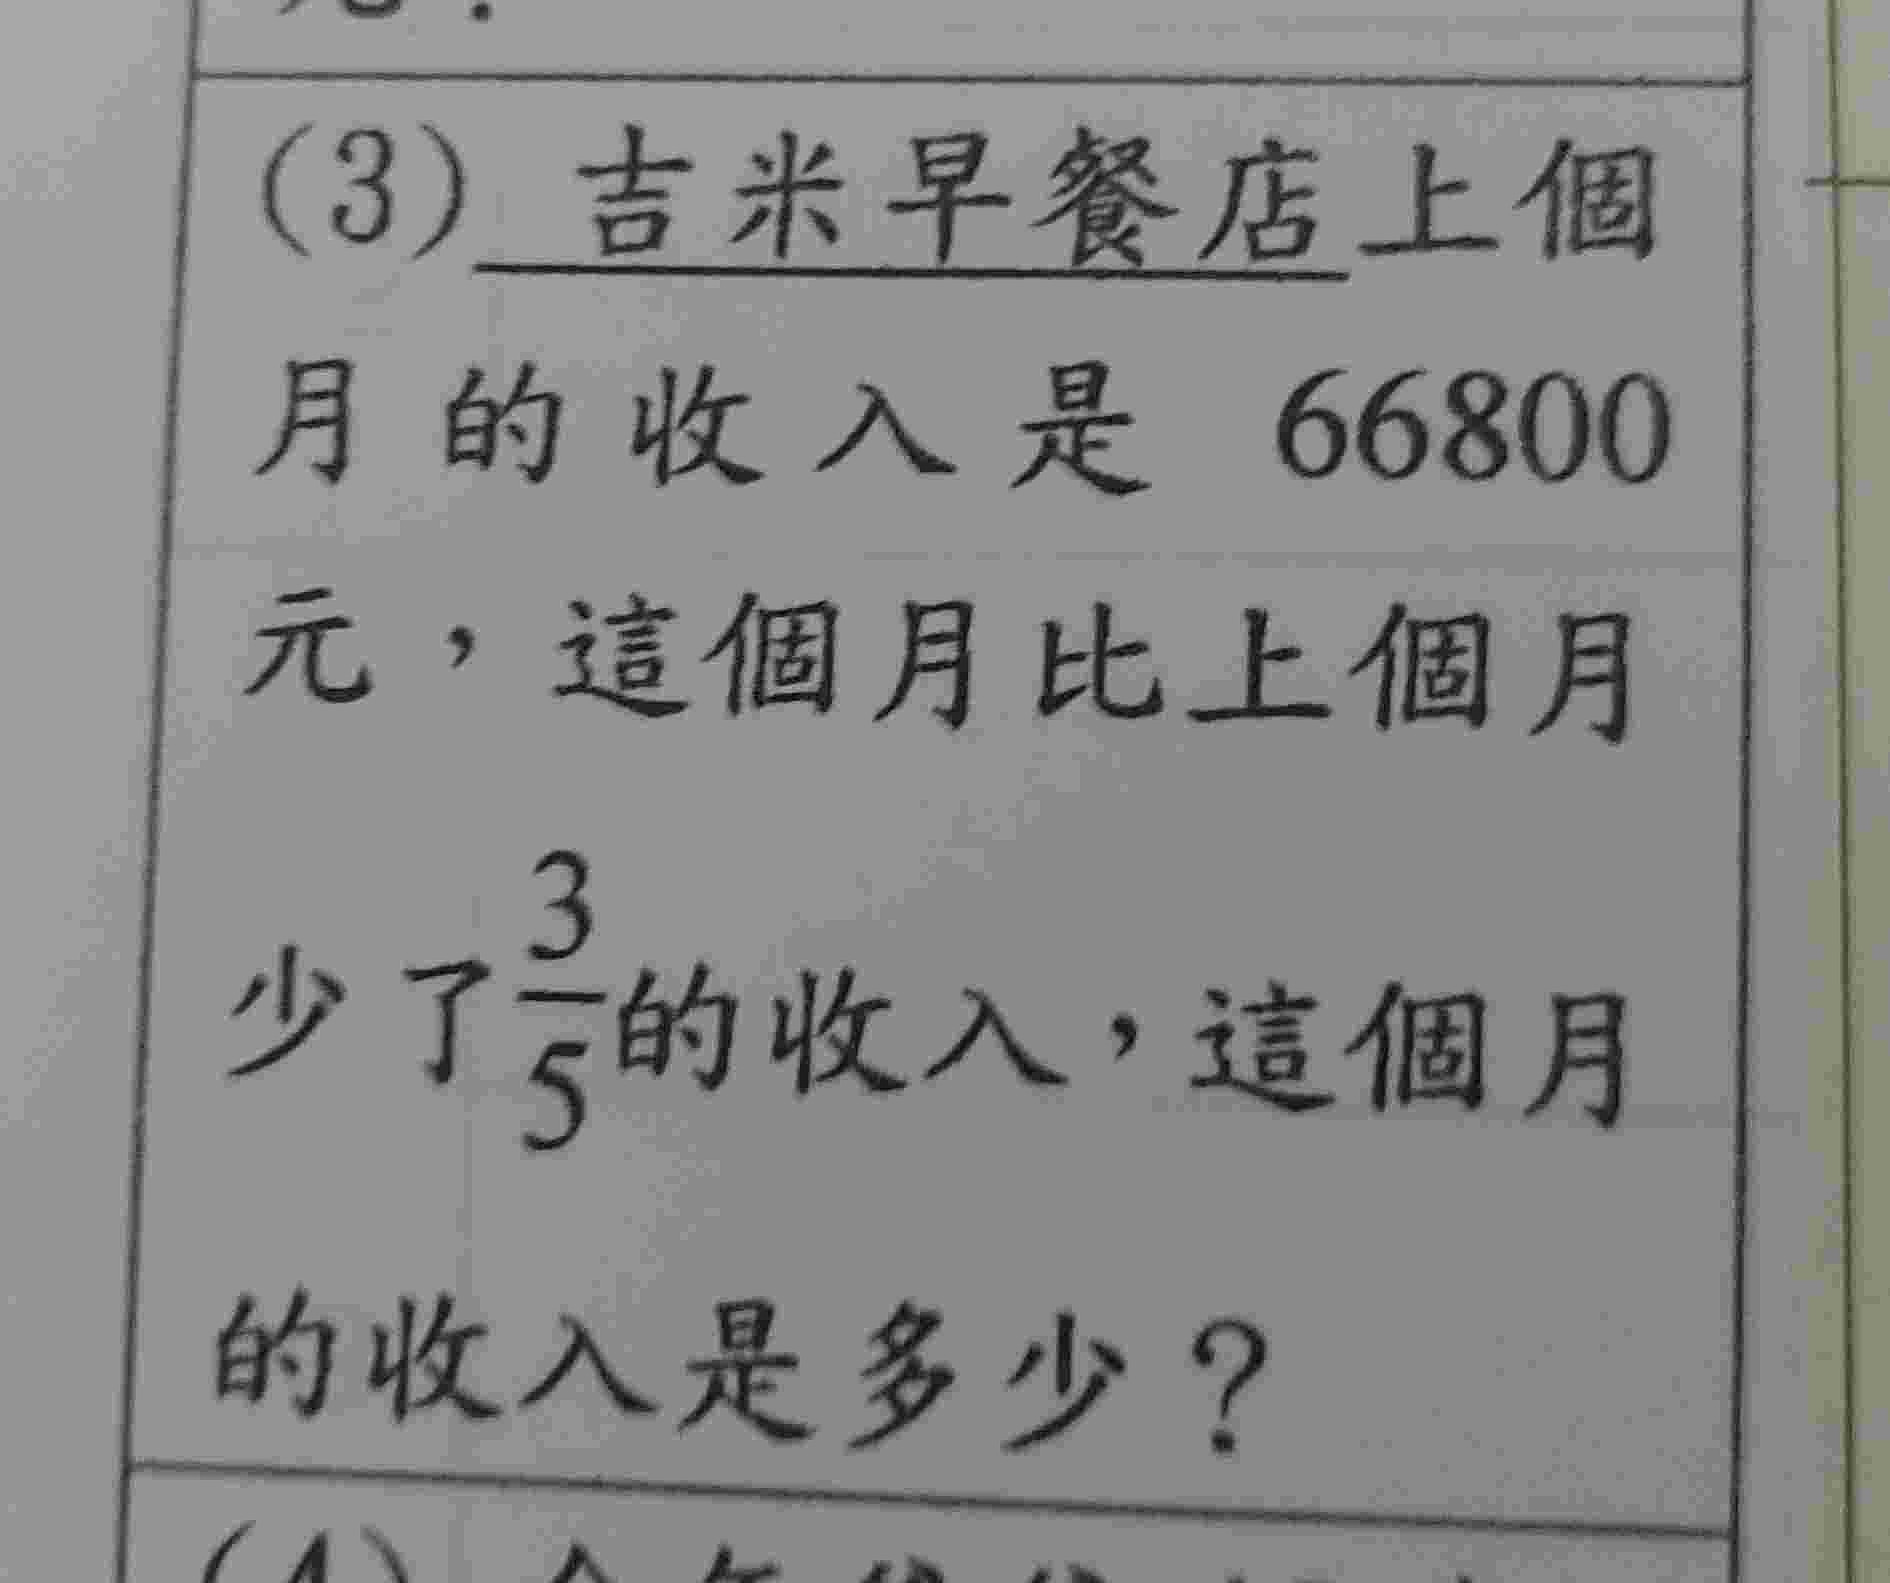 (3) 吉米早餐店上個
月的收入是 66800
元，這個月比上個月
少了3/5的收入，這個月
的收入是多少？